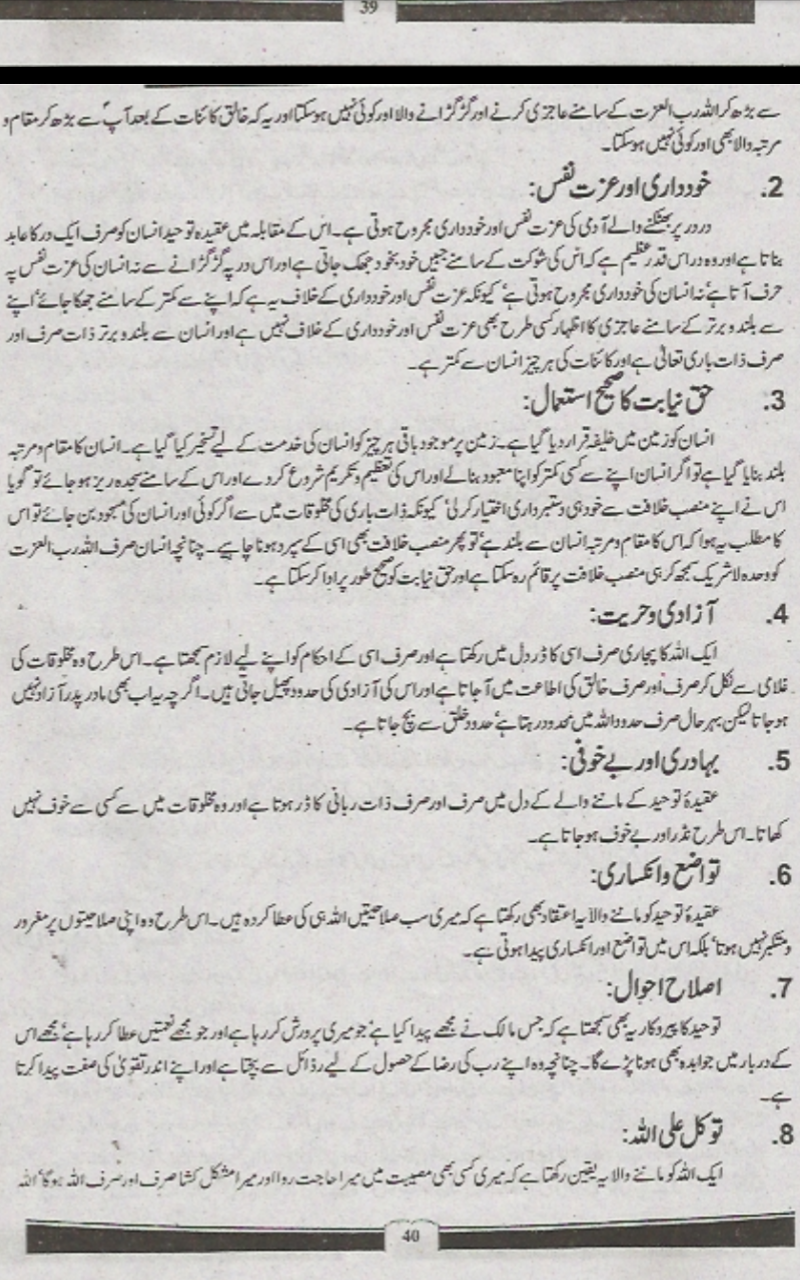 39
سے بڑھ کر اللہ رب العزت کے سامنے عاجزی کرنے اور گڑگڑانے والا اور کوئی نہیں ہو سکتا اور یہ کہ خالق کائنات کے بعد آپؐ سے بڑھ کر مقام و
مرتبہ والا بھی اور کوئی نہیں ہو سکتا۔
2. خودداری اور عزت نفس:
در در پر بھٹکنے والے آدمی کی عزت نفس اور خودداری مجروح ہوتی ہے۔ اس کے مقابلہ میں عقیدہ توحید انسان کو صرف ایک در کا عابد
بناتا ہے اور وہ در اس قدر عظیم ہے کہ اس کی شوکت کے سامنے جبیں خود بخود جھک جاتی ہے اور اس در پہ گڑگڑانے سے نہ انسان کی عزت نفس پہ
حرف آتا ہے نہ انسان کی خودداری مجروح ہوتی ہے‘ کیونکہ عزت نفس اور خودداری کے خلاف یہ ہے کہ اپنے سے کمتر کے سامنے جھکا جائے‘ اپنے
سے بلند و برتر کے سامنے عاجزی کا اظہار کسی طرح بھی عزت نفس اور خودداری کے خلاف نہیں ہے اور انسان سے بلند و برتر ذات صرف اور
صرف ذات باری تعالیٰ ہے اور کائنات کی ہر چیز انسان سے کمتر ہے۔
3. حق نیابت کا صحیح استعمال:
انسان کو زمین میں خلیفہ قرار دیا گیا ہے۔ زمین پر موجود باقی ہر چیز کو انسان کی خدمت کے لیے تسخیر کیا گیا ہے۔ انسان کا مقام و مرتبہ
بلند بنایا گیا ہے تو اگر انسان اپنے سے کسی کمتر کو اپنا معبود بنا لے اور اس کی تعظیم و تکریم شروع کر دے اور اس کے سامنے سجدہ ریز ہو جائے تو گویا
اس نے اپنے منصب خلافت سے خود ہی دستبرداری اختیار کر لی‘ کیونکہ ذات باری کی مخلوقات میں سے اگر کوئی اور انسان کی مسجود بن جائے تو اس
کا مطلب یہ ہوا کہ اس کا مقام و مرتبہ انسان سے بلند ہے‘ تو پھر منصب خلافت بھی اسی کے سپرد ہونا چاہیے۔ چنانچہ انسان صرف اللہ رب العزت
کو وحدہ لا شریک سمجھ کر ہی منصب خلافت پر قائم رہ سکتا ہے اور حق نیابت کو صحیح طور پر ادا کر سکتا ہے۔
4. آزادی و حریت:
ایک اللہ کا پجاری صرف اسی کا ڈر دل میں رکھتا ہے اور صرف اسی کے احکام کو اپنے لیے لازم سمجھتا ہے۔ اس طرح وہ مخلوقات کی
غلامی سے نکل کر صرف اور صرف خالق کی اطاعت میں آ جاتا ہے اور اس کی آزادی کی حدود پھیل جاتی ہیں۔ اگرچہ یہ اب بھی مادر پدر آزاد نہیں
ہو جاتا لیکن بہر حال صرف حدود اللہ میں محدود رہتا ہے‘ حدود خلق سے بچ جاتا ہے۔
5. بہادری اور بے خوفی:
عقیدۂ توحید کے ماننے والے کے دل میں صرف اور صرف ذات ربانی کا ڈر ہوتا ہے اور وہ مخلوقات میں سے کسی سے خوف نہیں
کھاتا۔ اس طرح نڈر اور بے خوف ہو جاتا ہے۔
6. تواضع و انکساری:
عقیدۂ توحید کو ماننے والا یہ اعتقاد بھی رکھتا ہے کہ میری سب صلاحیتیں اللہ ہی کی عطا کردہ ہیں۔ اس طرح وہ اپنی صلاحیتوں پر مغرور
و متکبر نہیں ہوتا‘ بلکہ اس میں تواضع اور انکساری پیدا ہوتی ہے۔
7. اصلاح احوال:
توحید کا پیروکار یہ بھی سمجھتا ہے کہ جس مالک نے مجھے پیدا کیا ہے‘ جو میری پرورش کر رہا ہے اور جو مجھے نعمتیں عطا کر رہا ہے‘ مجھے اس
کے دربار میں جوابدہ بھی ہونا پڑے گا۔ چنانچہ وہ اپنے رب کی رضا کے حصول کے لیے رذائل سے بچتا ہے اور اپنے اندر تقویٰ کی صفت پیدا کرتا
ہے۔
8. توکل علی اللہ:
ایک اللہ کو ماننے والا یہ یقین رکھتا ہے کہ میری کسی بھی مصیبت میں میرا حاجت روا اور میرا مشکل کشا صرف اور صرف اللہ ہوگا‘ اللہ
40